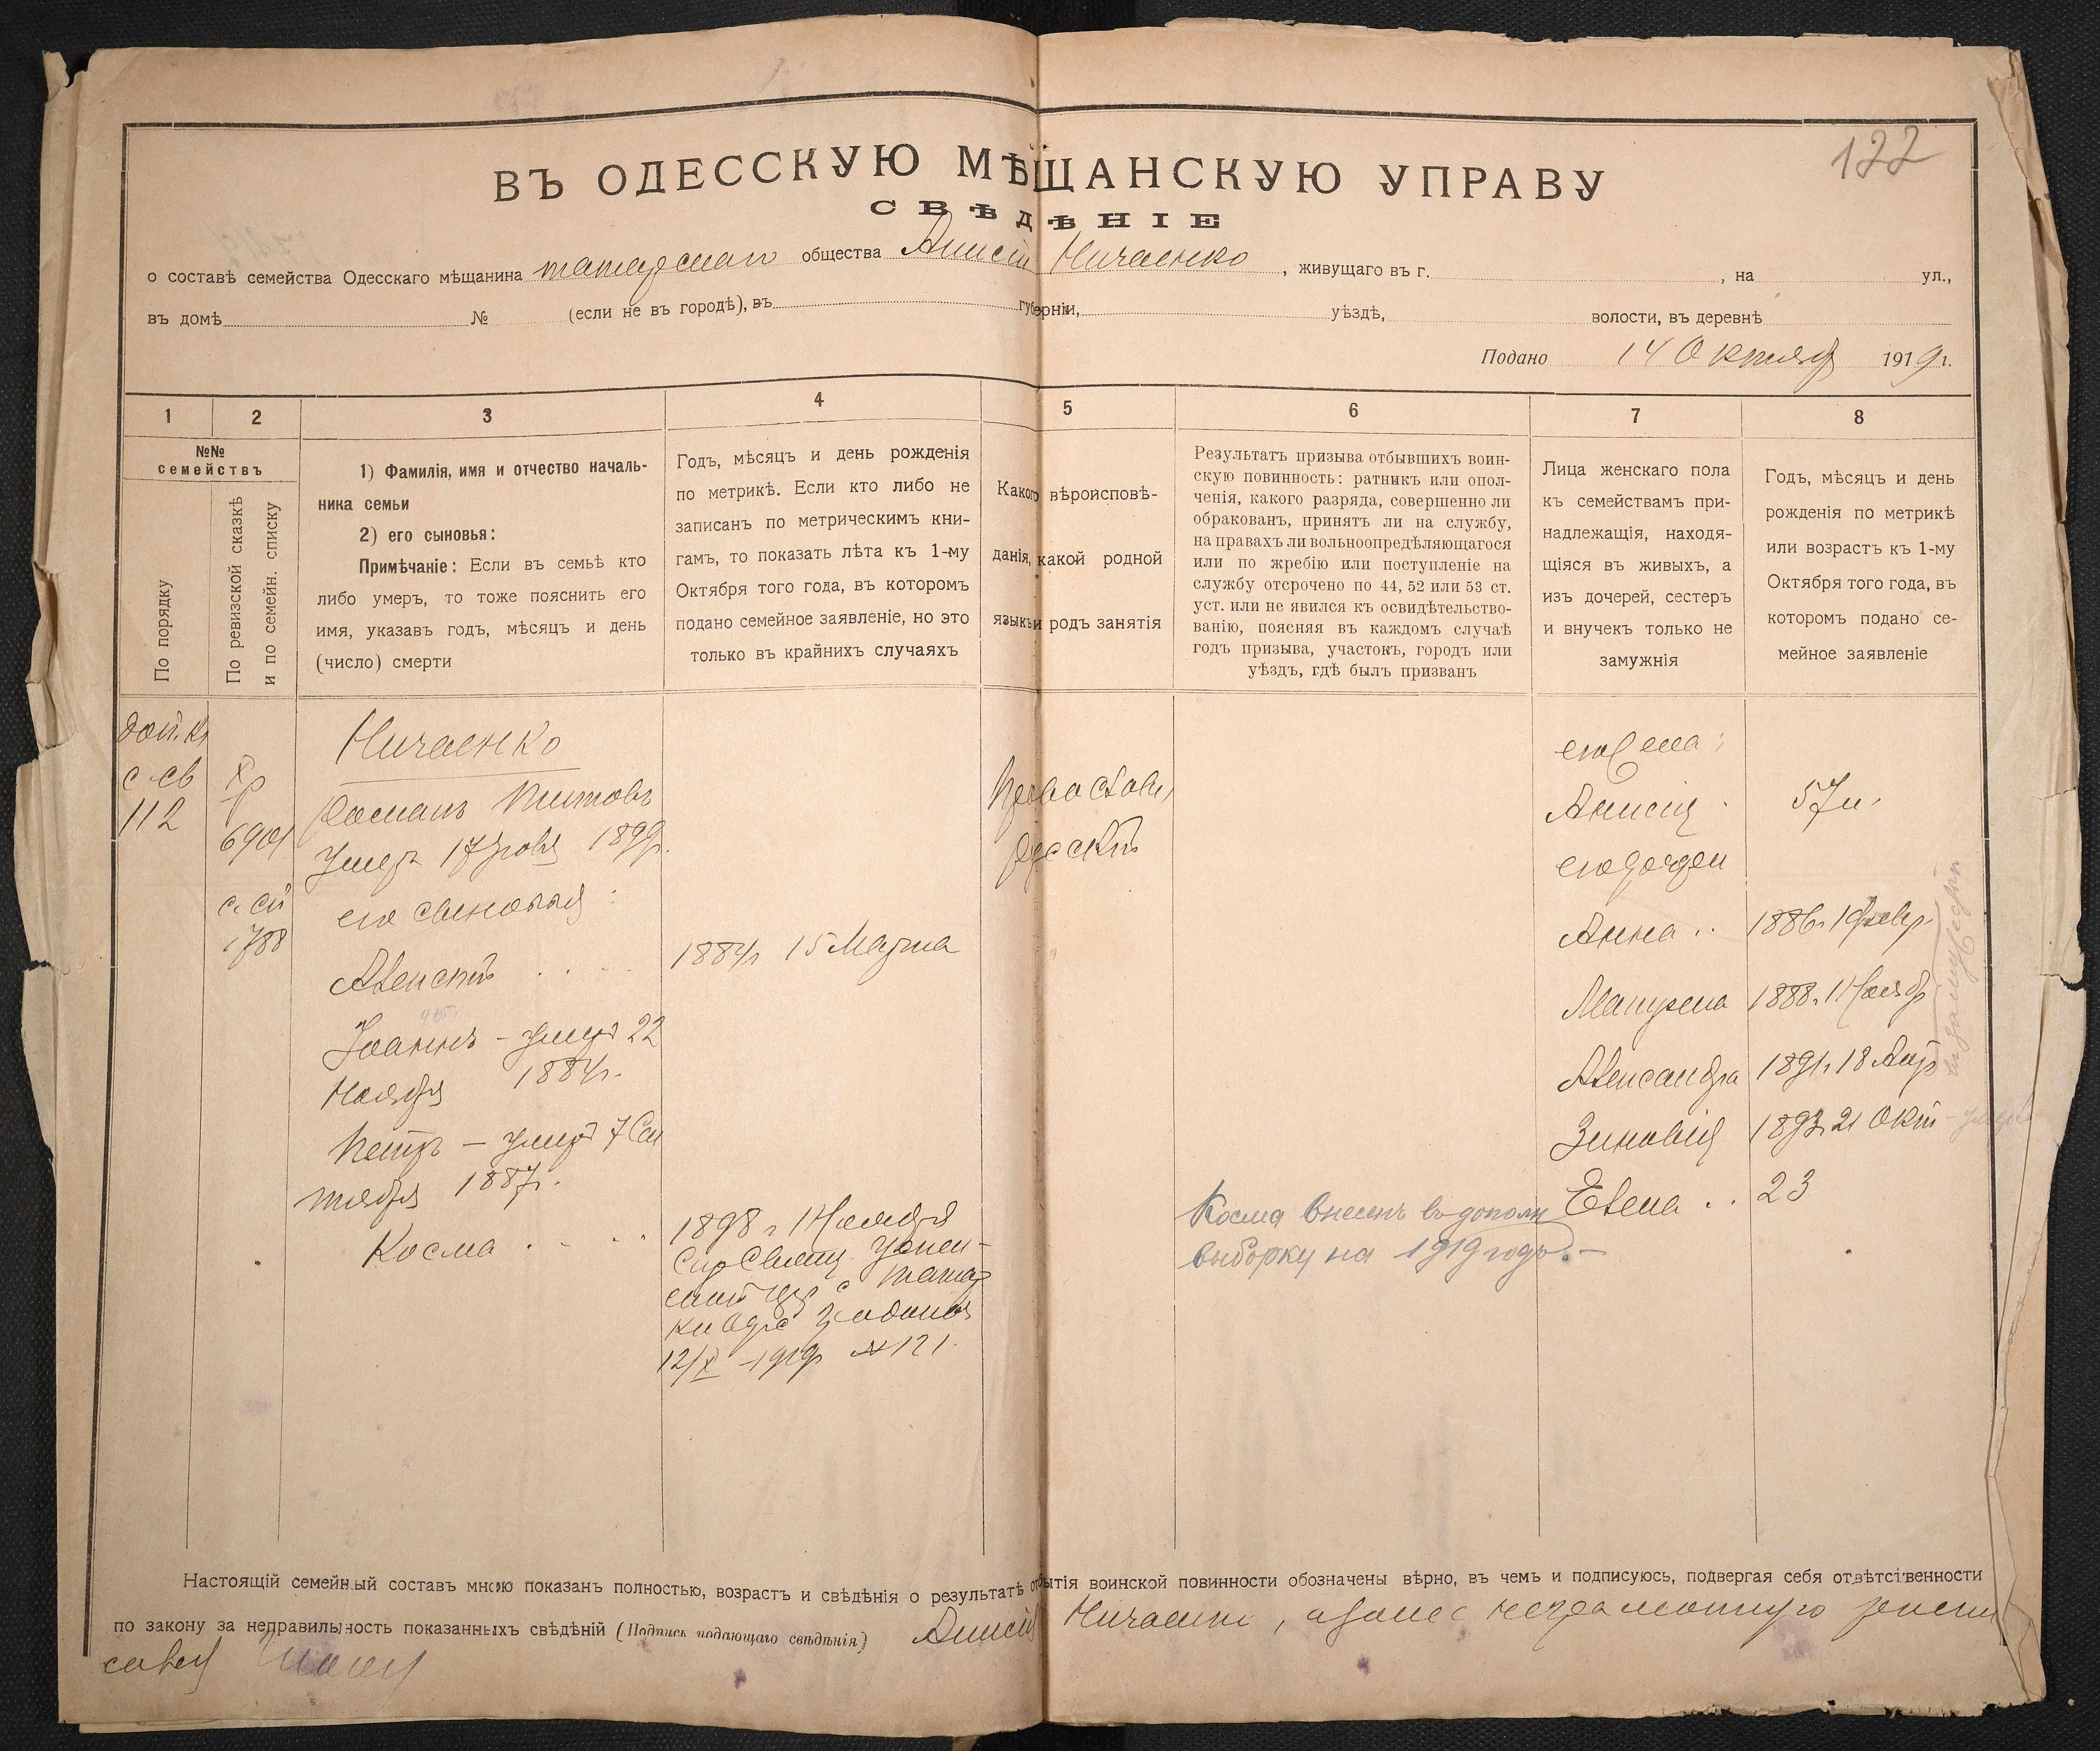 122
ВЪ ОДЕССКУЮ МѢЩАНСКУЮ УПРАВУ
СВѢДѢНІЕ
о составѣ семейства Одесскаго мѣщанина татарскаго общества Анисія Ничаенко, живущаго въ г. , на ул.,
въ домѣ № (если не въ городѣ), въ губерніи, уѣздѣ, волости, въ деревнѣ
Подано 14 Октября 1919 г.
1 2 3 4 5 6 7 8
№№
семействъ
По порядку
По ревизской сказкѣ
и по семейн. списку
1) Фамилія, имя и отчество началь-
ника семьи
2) его сыновья:
Примѣчаніе: Если въ семьѣ кто
либо умеръ, то тоже пояснить его
имя, указавъ годъ, мѣсяцъ и день
(число) смерти
Годъ, мѣсяцъ и день рожденія
по метрикѣ. Если кто либо не
записанъ по метрическимъ кни-
гамъ, то показать лѣта къ 1-му
Октября того года, въ которомъ
подано семейное заявленіе, но это
только въ крайнихъ случаяхъ
Какого вѣроисповѣ-
данія, какой родной
языкъ и родъ занятія
Результатъ призыва отбывшихъ воин-
скую повинность: ратникъ или опол-
ченія, какого разряда, совершенно ли
обракованъ, принятъ ли на службу,
на правахъ ли вольноопредѣляющагося
или по жребію или поступленіе на
службу отсрочено по 44, 52 или 53 ст.
уст. или не явился къ освидѣтельство-
ванію, поясняя въ каждомъ случаѣ
годъ призыва, участокъ, городъ или
уѣздъ, гдѣ былъ призванъ
Лица женскаго пола
къ семействамъ при-
надлежащія, находя-
щіяся въ живыхъ, а
изъ дочерей, сестеръ
и внучекъ только не
замужнія
Годъ, мѣсяцъ и день
рожденія по метрикѣ
или возрастъ къ 1-му
Октября того года, въ
которомъ подано се-
мейное заявленіе
112
1788
Ничаенко
Романъ Титовъ
умеръ 1899г.
его сыновья:
Алексѣй
Іоаннъ - умеръ 22
Ноября 1884г.
Петръ - умеръ 7 Сен
тября 1887г.
Косма
1884г 15 Марта
1898 г 1 Ноября
12/X 1919г №121.
Православ,
Русскій
Косма внесенъ въ дополн
выборку на 1919 годъ.-
его жена:
Анисія
его дочери
Анна
Матрена
Александра
Зиновія
Елена
57 л.
1886г. 1 Февр.
1888г. 1 Ноябр
1891г. 18 Апр
1893г. 21 Окт - умерла
23
незамужнія
Настоящій семейный составъ мною показанъ полностью, возрастъ и свѣдѣнія о результатѣ отбытія воинской повинности обозначены вѣрно, въ чемъ и подписуюсь, подвергая себя отвѣтственности
по закону за неправильность показанныхъ свѣдѣній (Подпись подающаго свѣдѣнія) Анисія Ничаенко, а за нее неграмотную распи
сался